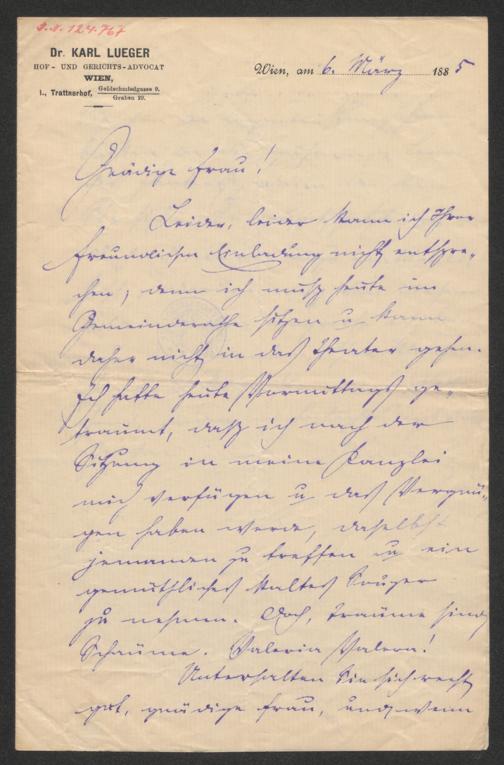 I.N. 124.767
Dr. KARL LUEGER
HOF- UND GERICHTS-ADVOCAT
WIEN,
I., Trattnerhof, Goldschmiedgasse 9.
Graben 29.
Wien, am 6. März 1885
Gnädige Frau!
Leider, leider kann ich Ihrer
freundlichen Einladung nicht entspre-
chen, denn ich muß heute im
Gemeinderathe sitzen u kann
daher nicht in das Theater gehen.
Ich hatte heute Vormittags ge-
träumt, daß ich nach der
Sitzung in meine Kanzlei
mich verfügen u das Vergnü-
gen haben werde, daselbst
jemanden zu treffen u ein
gemüthliches kaltes Souper
zu nehmen. Doch, Träume sind
Schäume. Valeria Valera!
Unterhalten Sie sich recht
gut, gnädige Frau, und wenn